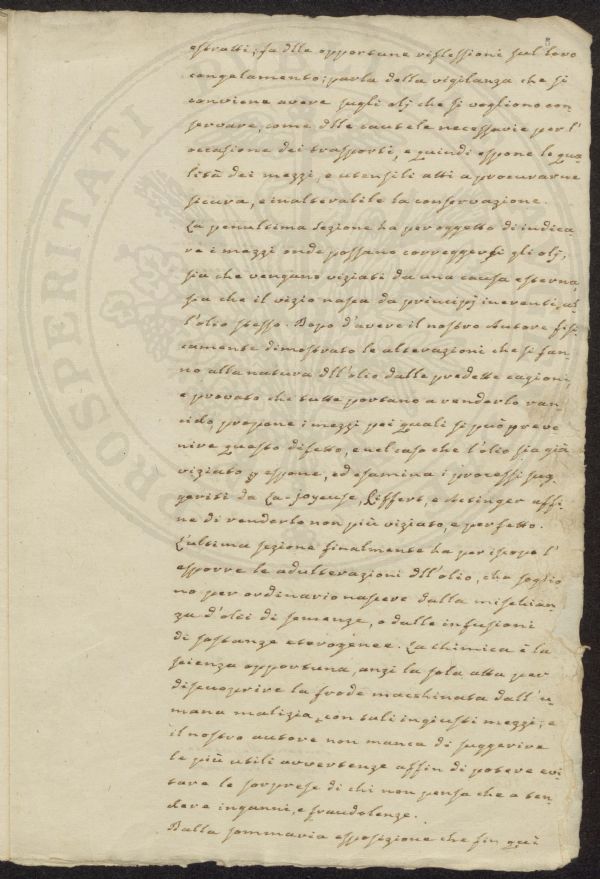 estratti; fa dlle opportune riflessioni sul loro
congelamento; parla della vigilanza che si
conviene avere sugli olj che si vogliono con
servare, come dlle cautele necessarie per l'
occasione dei trasporti, e quindi espone le qua
lità dei mezzi, e utensili atti a procurarne
sicura, e inalterabile la conservazione.
La penultima sezione ha per oggetto di indica
re i mezzi onde possano correggersi gli olj,
sia che vengano viziati da una causa esterna,
sia che il vizio nasca da principj inerenti al
l'olio stesso. Dopo d'avere il nostro Autore fisi
camente dimostrato le alterazioni che si fan
no alla natura dll'olio dalle predette cagioni,
e provato che tutte portano a renderlo ran
cido propone i mezzi pei quali si può preve
nire questo difetto, e nel caso che l'olio sia già
viziato espone, ed esamina i processi sug
geriti da La-Joyeuse, Siffert, e Astinger affi
ne di renderlo non più viziato, e perfetto.
L'ultima sezione finalmente ha per iscopo l'
esporre le adulterazioni dll'olio, che soglio
no per ordinario nascere dalla mischian
za d'olei di semenze, o dalle infusioni
di sostanze eterogenee. La chimica è la
scienza opportuna, anzi la sola atta per
discuoprire la frode macchinata dall'u
mana malizia con tali ingiusti mezzi, e
il nostro autore non manca di suggerire
le più utili avvertenze affin di potere evi
tare le sorprese di chi non pensa che a ten
dere inganni, e fraudolenze.
Dalla sommaria esposizione che fin quì
PROSPERITATI